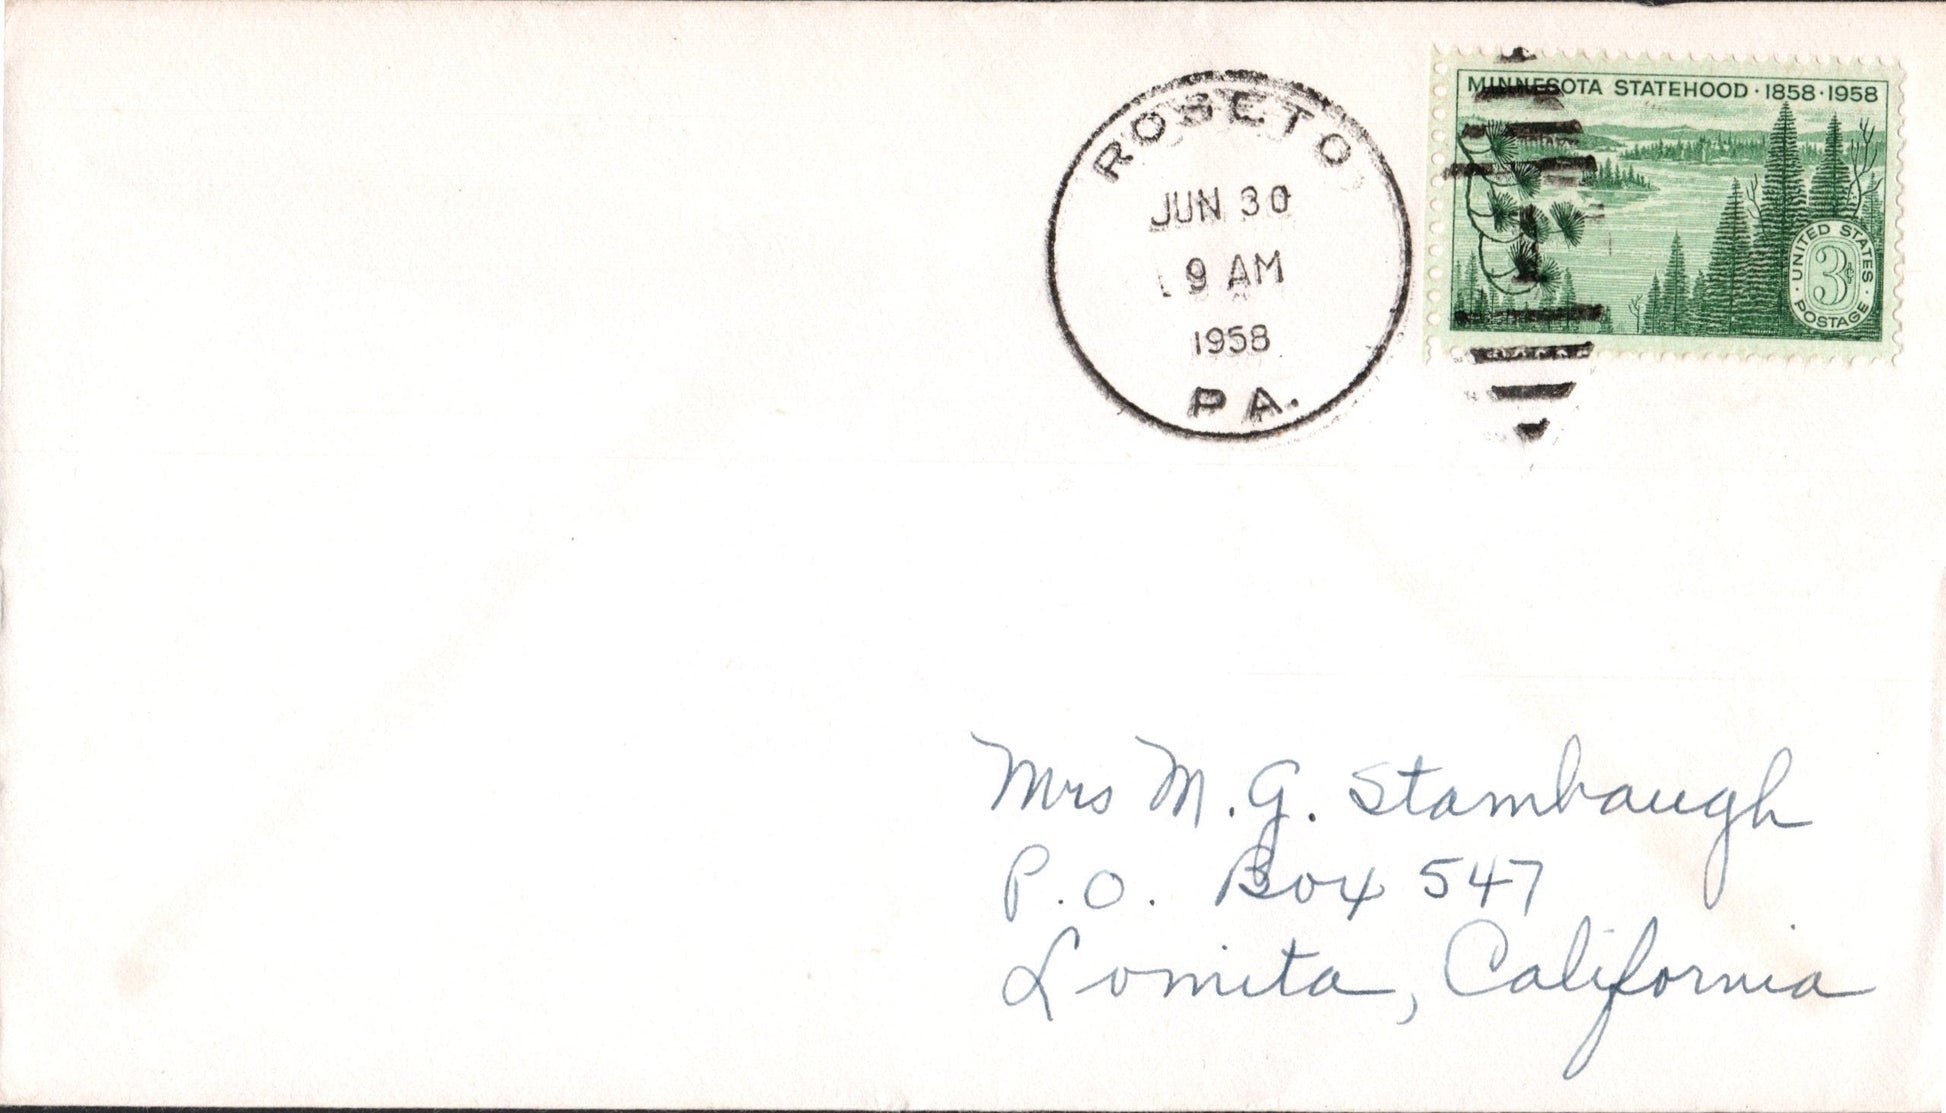 ROSETO
JUN 30
9 AM
1958
PA.
MINNESOTA STATEHOOD · 1858 · 1958
UNITED STATES
3¢
POSTAGE
Mrs M. G. Stambaugh
P. O. Box 547
Lomita, California